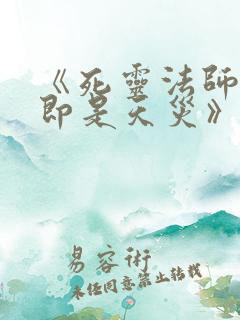 《死靈法師
即是天災》
易容術
未经同意禁止转载